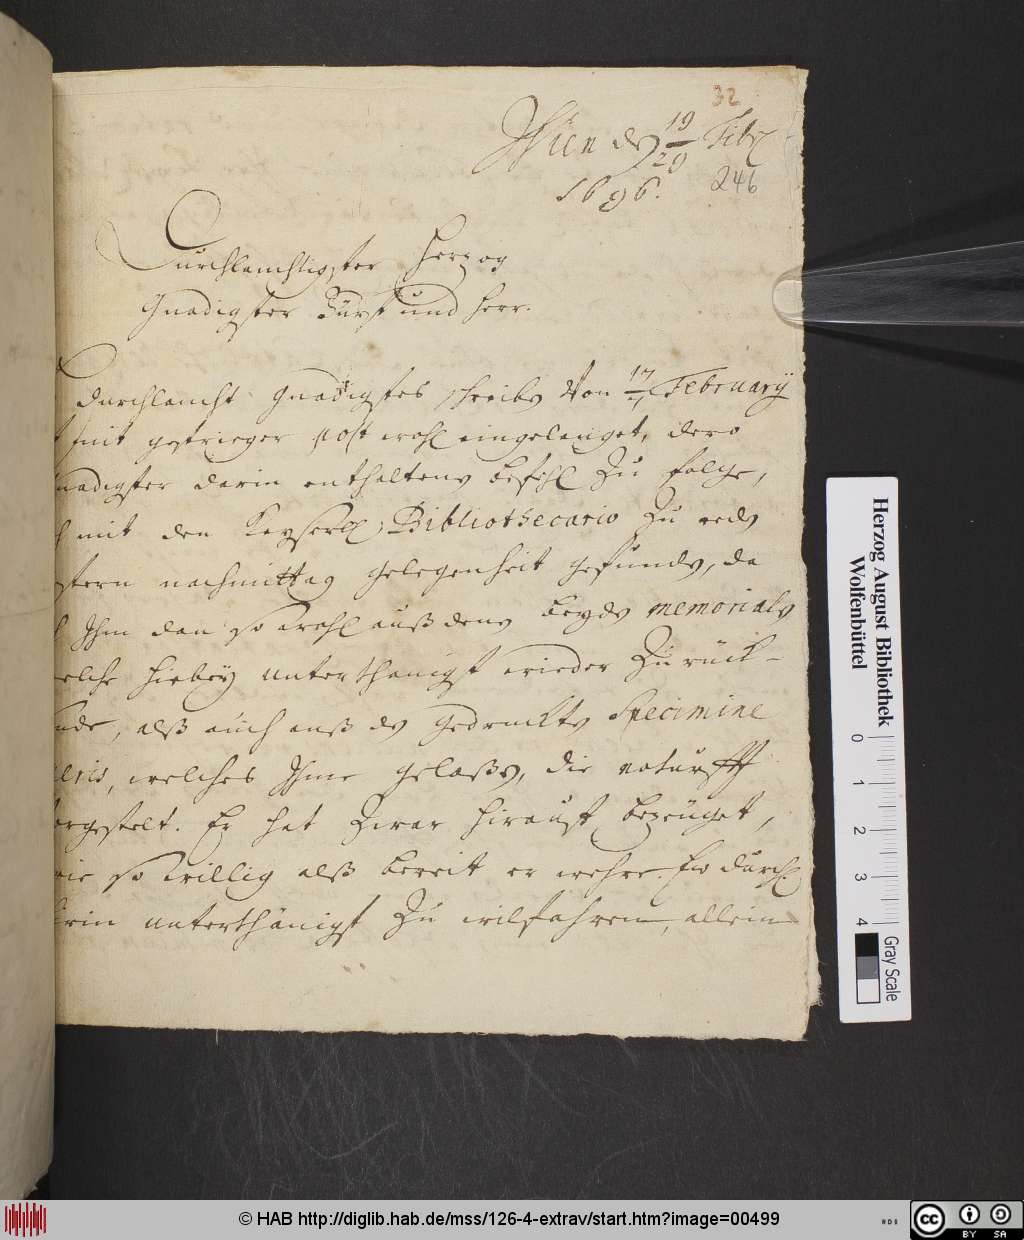 32
Wien den 19/29 Feb.
1696. 246
Durchlauchtigster Herzog
Gnädigster Fürst und Herr.
Durchlaucht gnädigstes schreiben Von 17 February
mit gestriger post wohl eingelanget, dero
gnädigster darin enthaltenen befehl Zu folge,
mit den Keyserl. Bibliothecario Zu reden
gestern nachmittag gelegenheit gefunden, da
Ihm dan so wohl auß denen beyden memorialen
welche hiebey unterthänigst wieder Zurück-
sende, alß auch auß den gedruckten Specimine
welches Ihme gelaßen, die
vorgestelt. Er hat Zwar hirauff bezeuget,
wie so willig alß bereit er wehre Ew Durchl.
hierin unterthänigst Zu wilfahren, allein
Herzog August Bibliothek
Wolfenbüttel
0 1 2 3 4
Gray Scale
© HAB http://diglib.hab.de/mss/126-4-extrav/start.htm?image=00499
cc BY SA